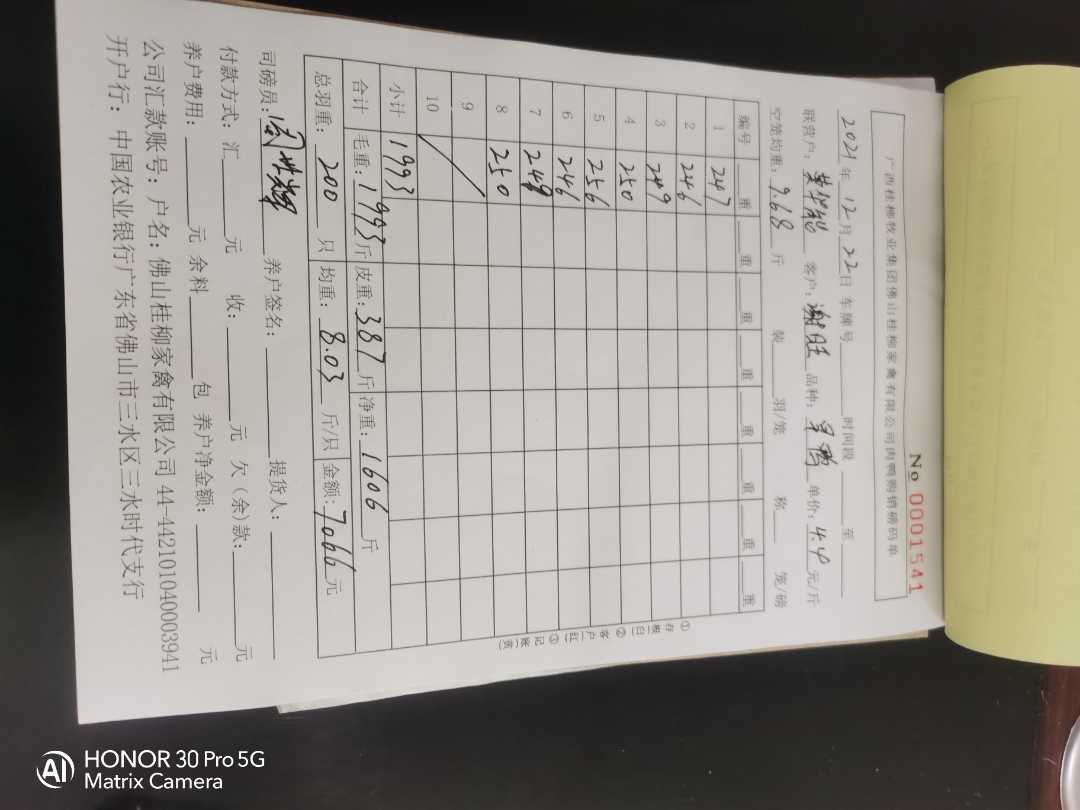 No 0001541
广西桂柳牧业集团佛山桂柳家禽有限公司肉鸭购销磅码单
2021年12月22日 车牌号 时间段 至
联营户: 客户: 谢旺 品种: 单价: 4.4 元/斤
空笼均重: 9.68 斤 装 羽/笼 称 笼/磅
编号 重 重 重 重 重 重 重 重
1 247
2 246
3 249
4 250
5 256
6 246
7 249
8 250
9
10
小计 1993
合计 毛重: 1993 斤 皮重: 387 斤 净重: 1606 斤
总羽重: 200 只 均重: 8.03 斤/只 金额: 7066 元
司磅员: 养户签名: 提货人:
付款方式: 汇 元 收: 元 欠(余)款: 元
养户费用: 元 余料 包 养户净金额: 元
公司汇款账号: 户名: 佛山桂柳家禽有限公司 44-442101040003941
开户行: 中国农业银行广东省佛山市三水区三水时代支行
①存根(白) ②客户(红) ③记账(黄)
AI HONOR 30 Pro 5G
Matrix Camera